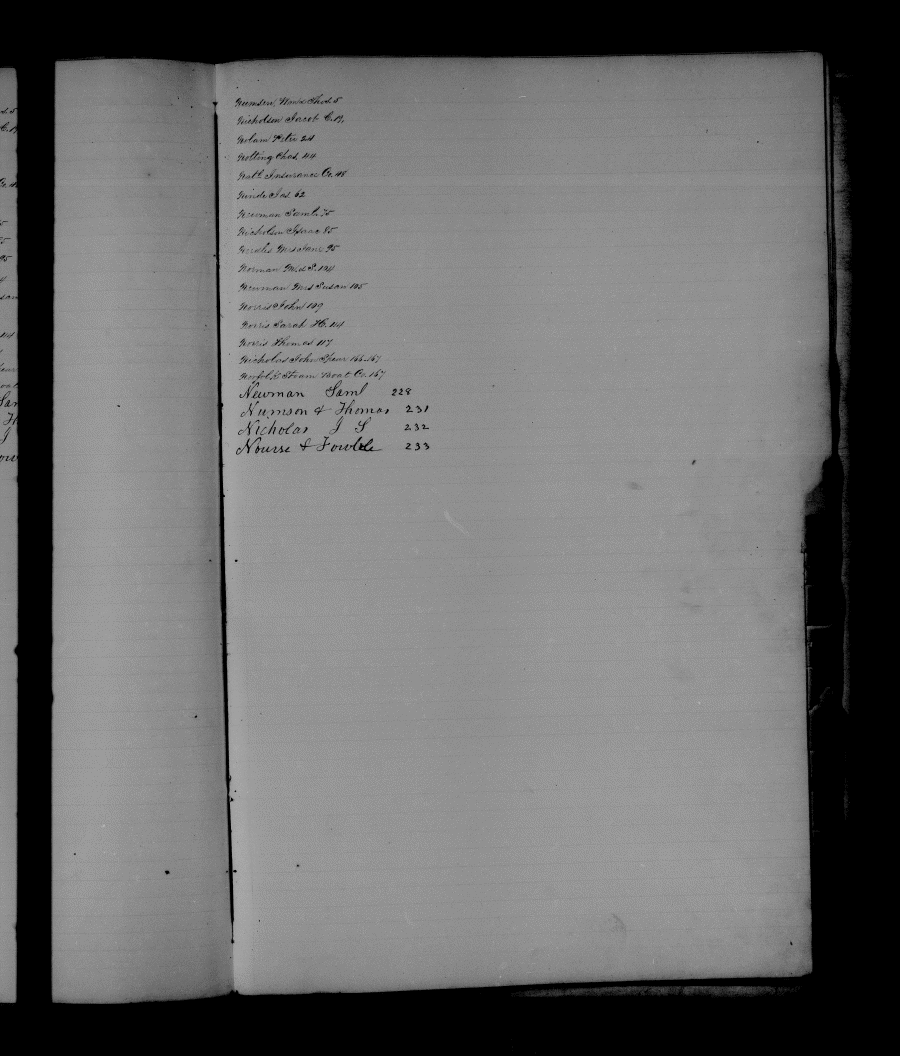 Numsen Thos. 5
Nicholson Jacob C. 19,
Nolam Peter 24
Nolting Chas. 44
Natl. Insurance Co. 48
Jas. 62
Newman Saml. 75
Nicholson Isaac 85
95
Norman S. 104
Newman Mrs Susan 105
Norris John 109
Norris Sarah H. 114
Norris Thomas 117
Nicholas John Spear 166-167
Norfolk Steam Boat Co. 167
Newman Saml 228
Numson & Thomas 231
Nicholas J S 232
Nourse & Fowble 233